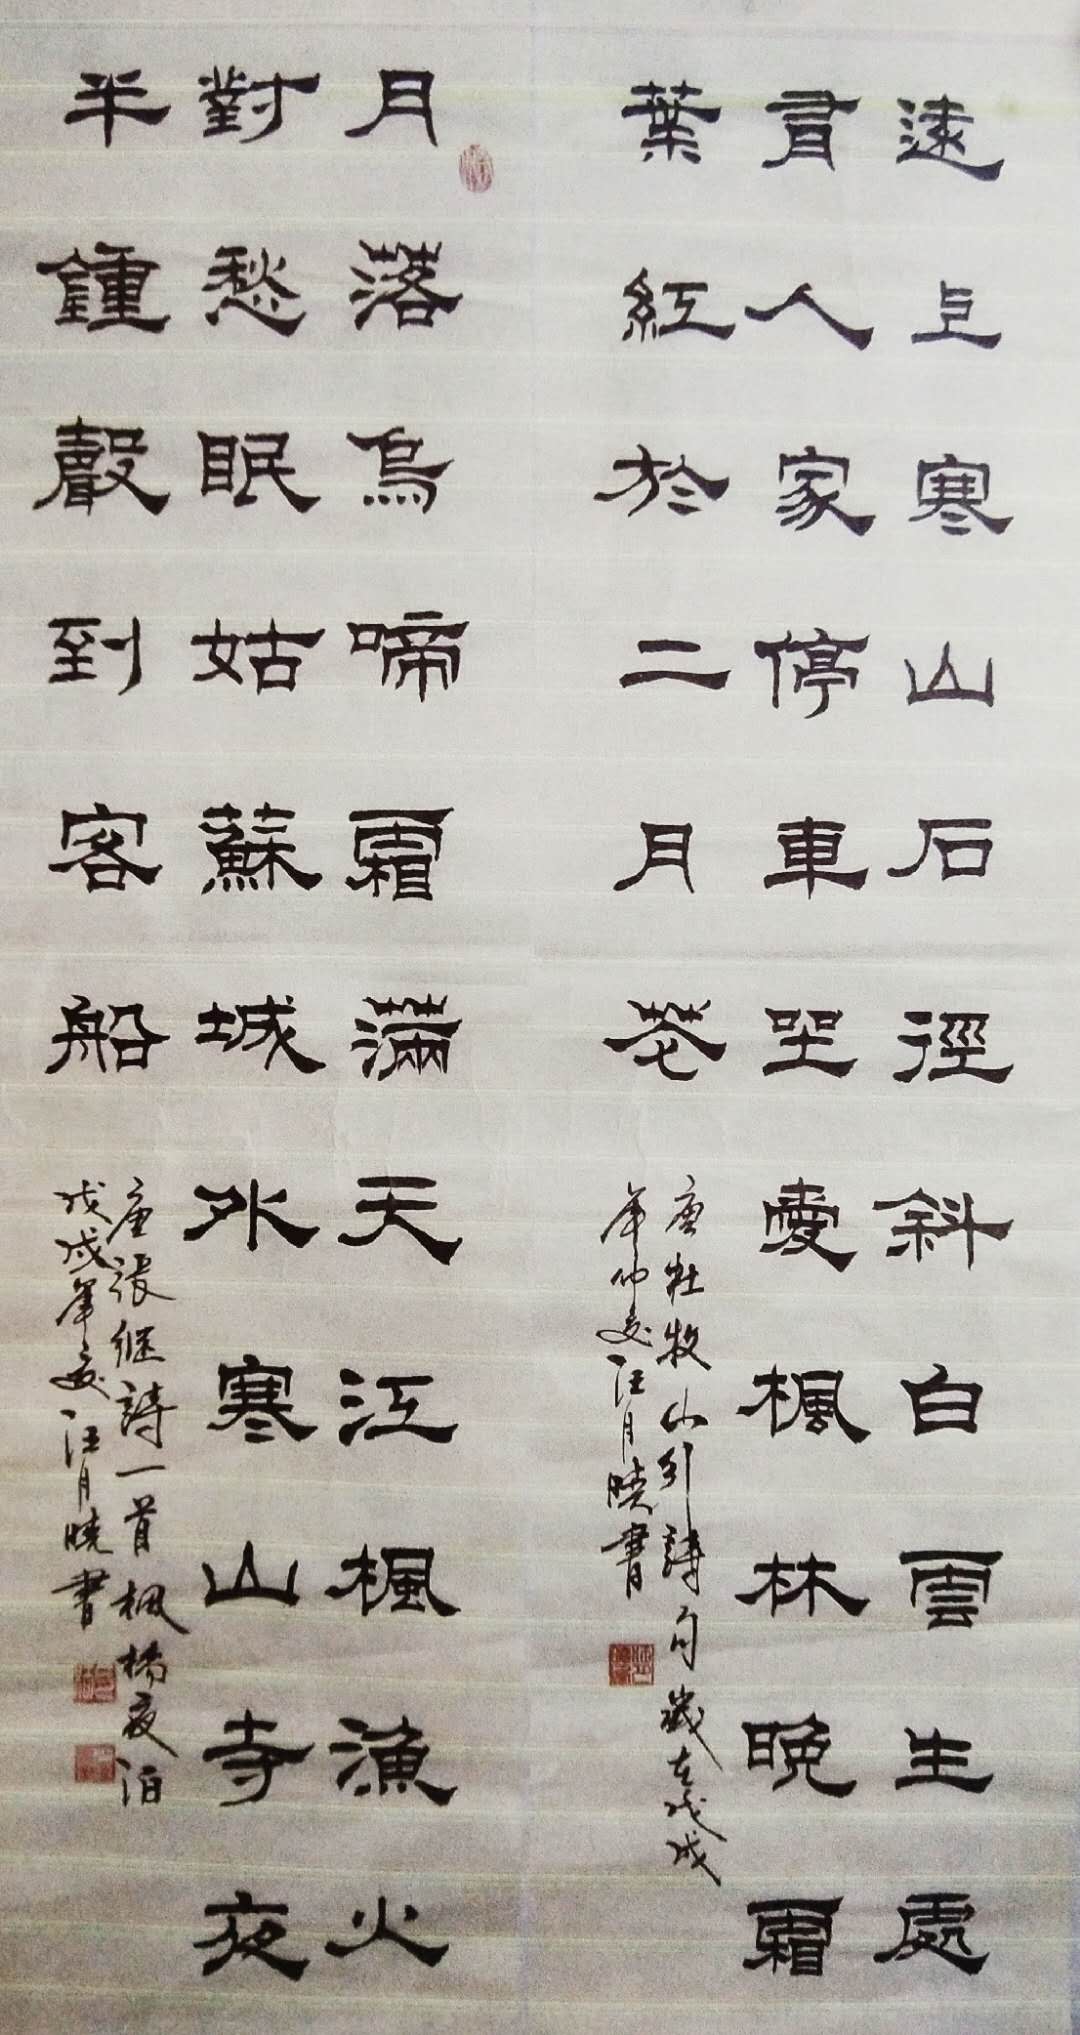 遠上寒山石徑斜白雲生處
有人家停車坐愛楓林晚霜
葉紅於二月花
唐杜牧山行詩句歲在戊戌
年仲夏汪月曉書
月落烏啼霜滿天江楓漁火
對愁眠姑蘇城外寒山寺夜
半鍾聲到客船
唐張継詩一首楓橋夜泊
戊戌年夏汪月曉書